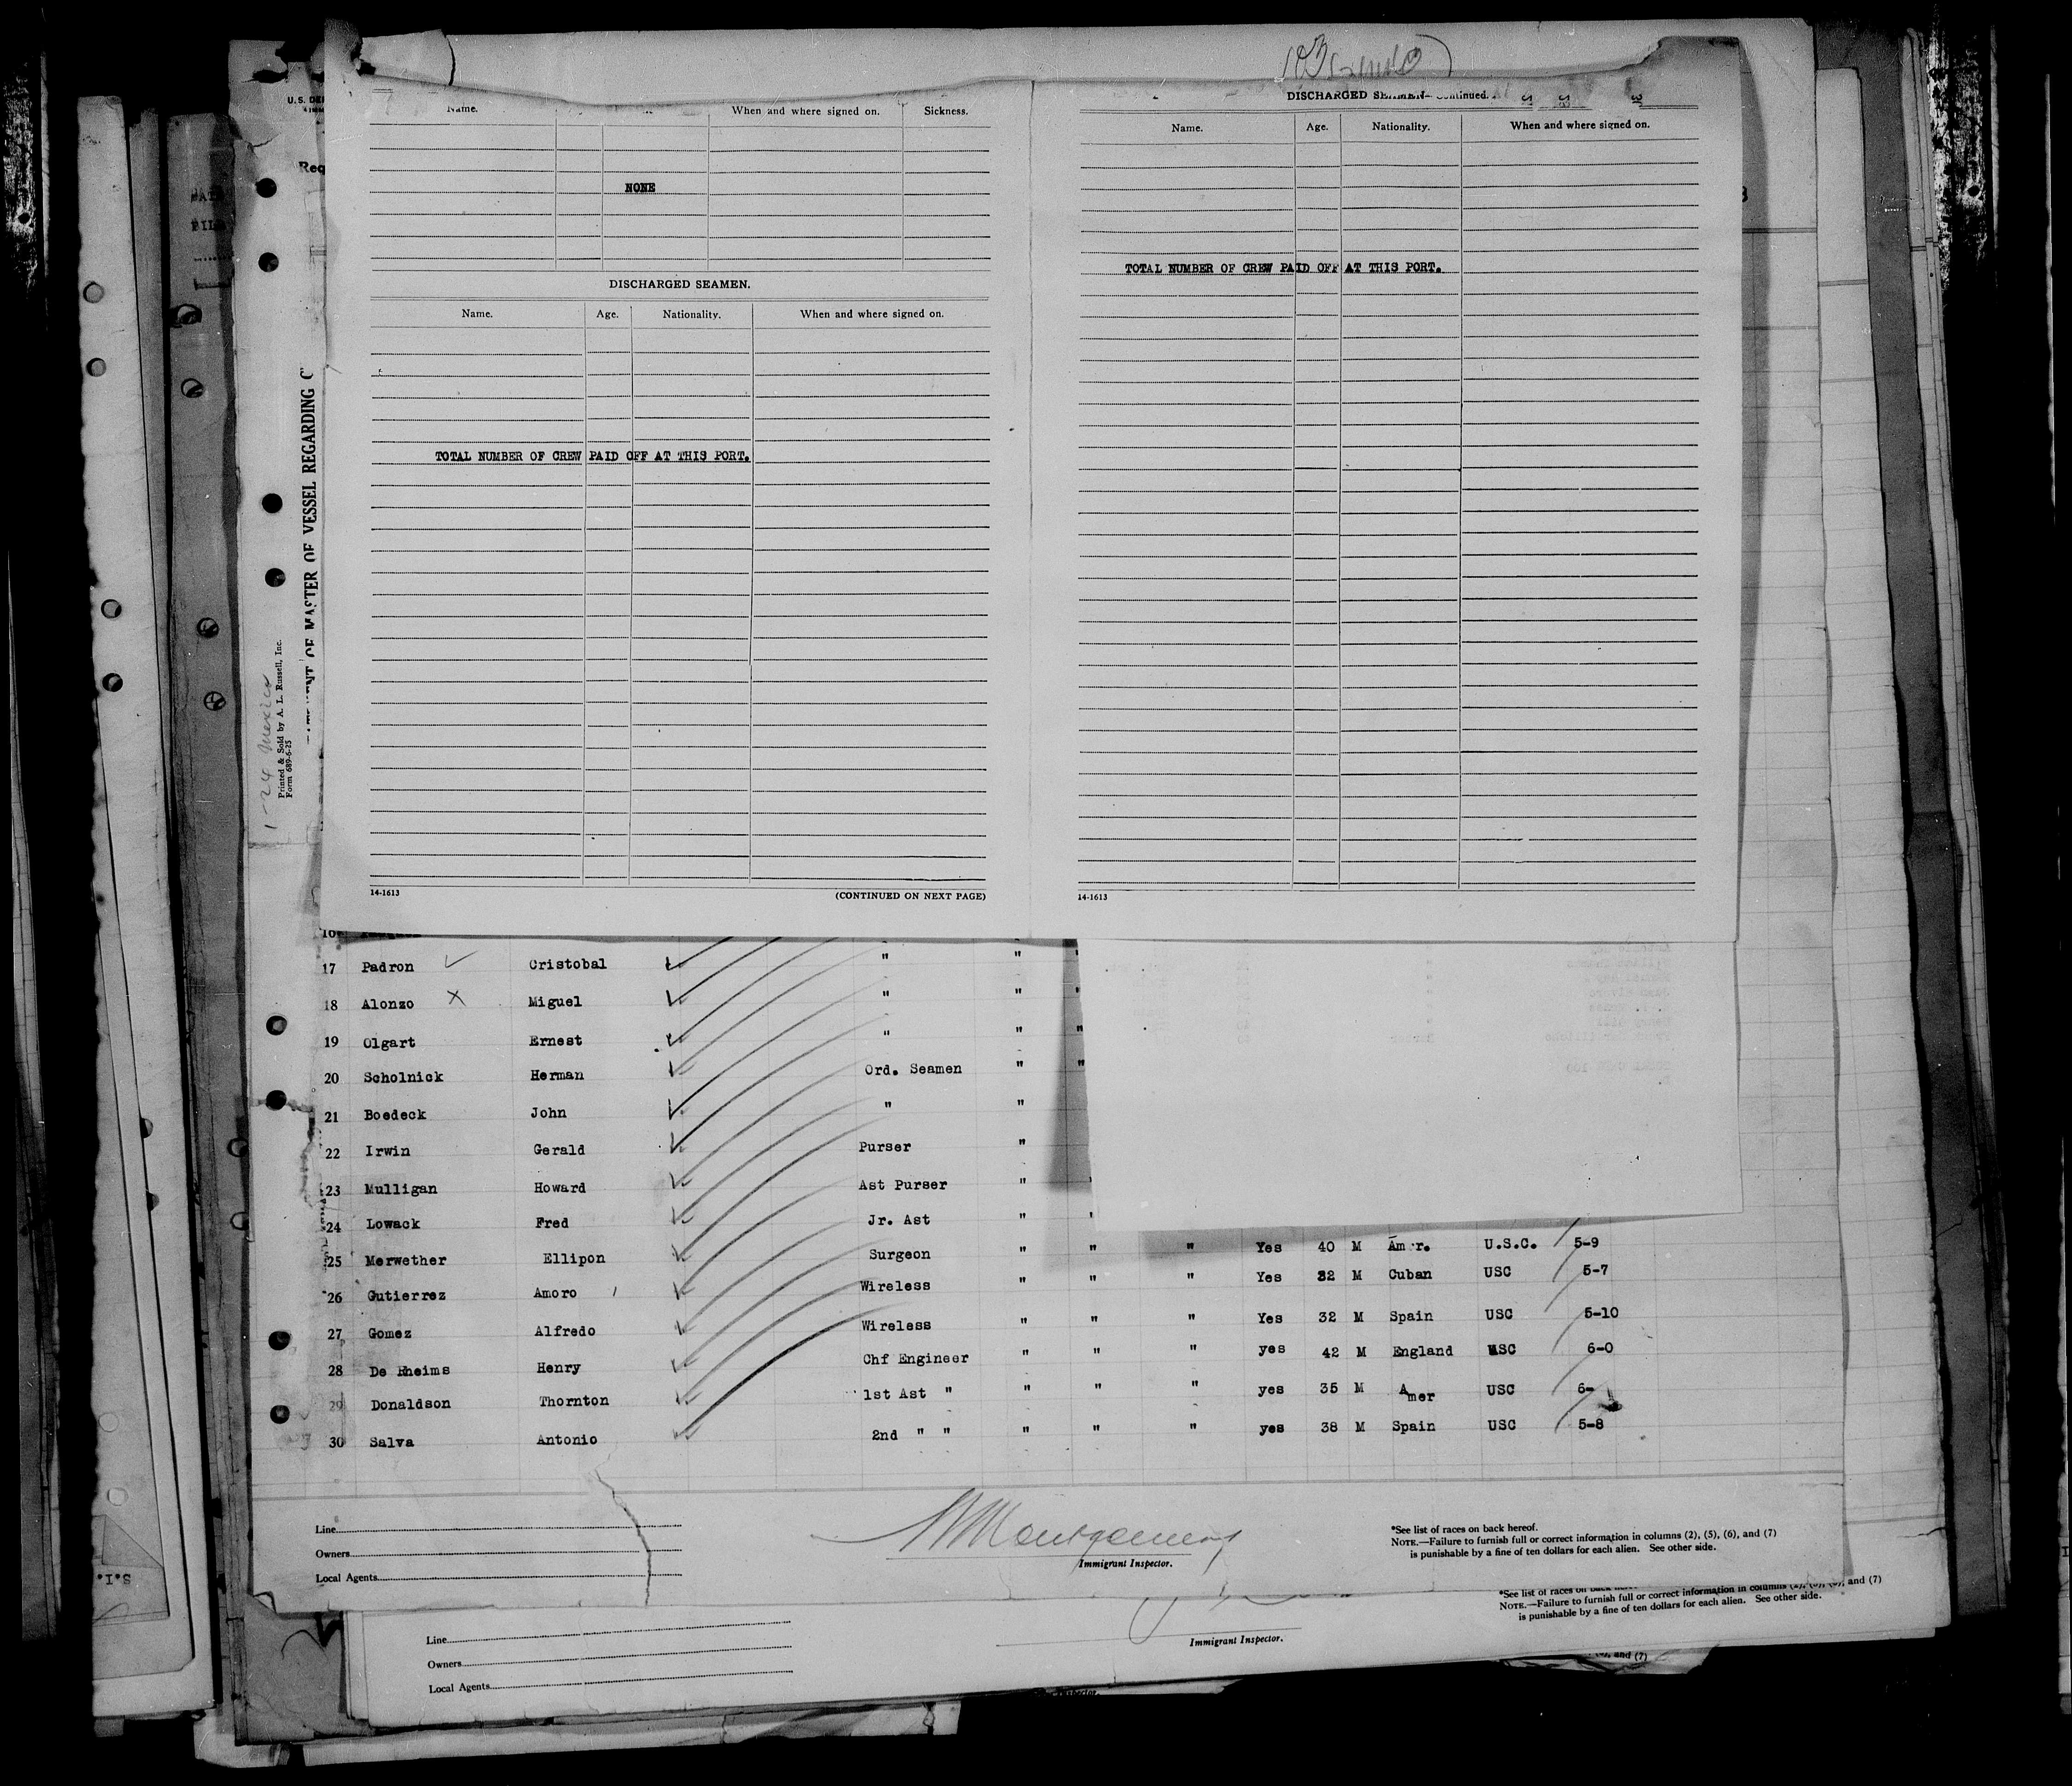 U.S. DE
Req
OF MASTER OF VESSEL REGARDING C
1-24 Mexico
Printed & Sold by A. L. Russell, Inc.
Form 689-6-25
Name. When and where signed on. Sickness.
NONE
DISCHARGED SEAMEN.
Name. Age. Nationality. When and where signed on.
TOTAL NUMBER OF CREW PAID OFF AT THIS PORT.
14-1613 (CONTINUED ON NEXT PAGE)
DISCHARGED SEAMEN—Continued.
Name. Age. Nationality. When and where signed on.
TOTAL NUMBER OF CREW PAID OFF AT THIS PORT.
14-1613
17 Padron Cristobal " " "
18 Alonzo X Miguel " " "
19 Olgart Ernest " " "
20 Scholnick Herman Ord. Seamen " "
21 Boedeck John " "
22 Irwin Gerald Purser "
23 Mulligan Howard Ast Purser "
24 Lowack Fred Jr. Ast "
25 Merwether Ellipon Surgeon " " " Yes 40 M Amer. U.S.C. 5-9
26 Gutierrez Amoro Wireless " " " Yes 32 M Cuban USC 5-7
27 Gomez Alfredo Wireless " " " Yes 32 M Spain USC 5-10
28 De Rheims Henry Chf Engineer " " " yes 42 M England USC 6-0
29 Donaldson Thornton 1st Ast " " " " yes 35 M Amer USC 6-
30 Salva Antonio 2nd " " " " " yes 38 M Spain USC 5-8
Line
Owners
Local Agents
Montgomery
Immigrant Inspector.
*See list of races on back hereof.
NOTE.—Failure to furnish full or correct information in columns (2), (5), (6), and (7)
is punishable by a fine of ten dollars for each alien. See other side.
*See list of races on back
NOTE.—Failure to furnish full or correct information in columns and (7)
is punishable by a fine of ten dollars for each alien. See other side.
Line
Owners
Local Agents
Immigrant Inspector.
and (7)